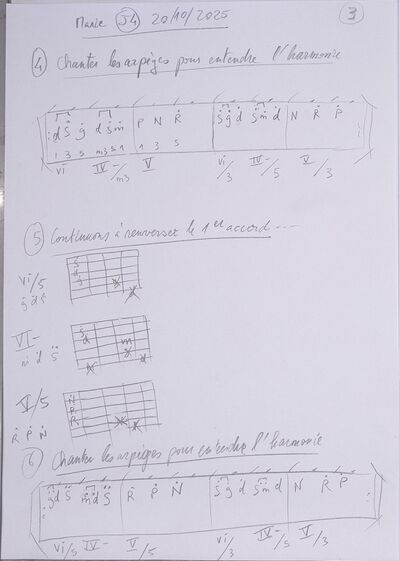 Marie S4 20/10/2025
3
4 Chanter les arpèges pour entendre l'harmonie
: d S g d S m | P N R | S g d S m d | N R P :
1 3 5 m3 5 1 1 3 5
vi IV-/m3 V vi/3 IV-/5 V/3
5 Continuons à renverser le 1er accord ...
vi/5
g d S
S
d
g
VI-
m d S
S
d m
V/5
R P N
N
P
R
6 Chanter les arpèges pour entendre l'harmonie
: g d S m d S | R P N | S g d S m d | N R P :
vi/5 IV- V/5 vi/3 IV-/5 V/3